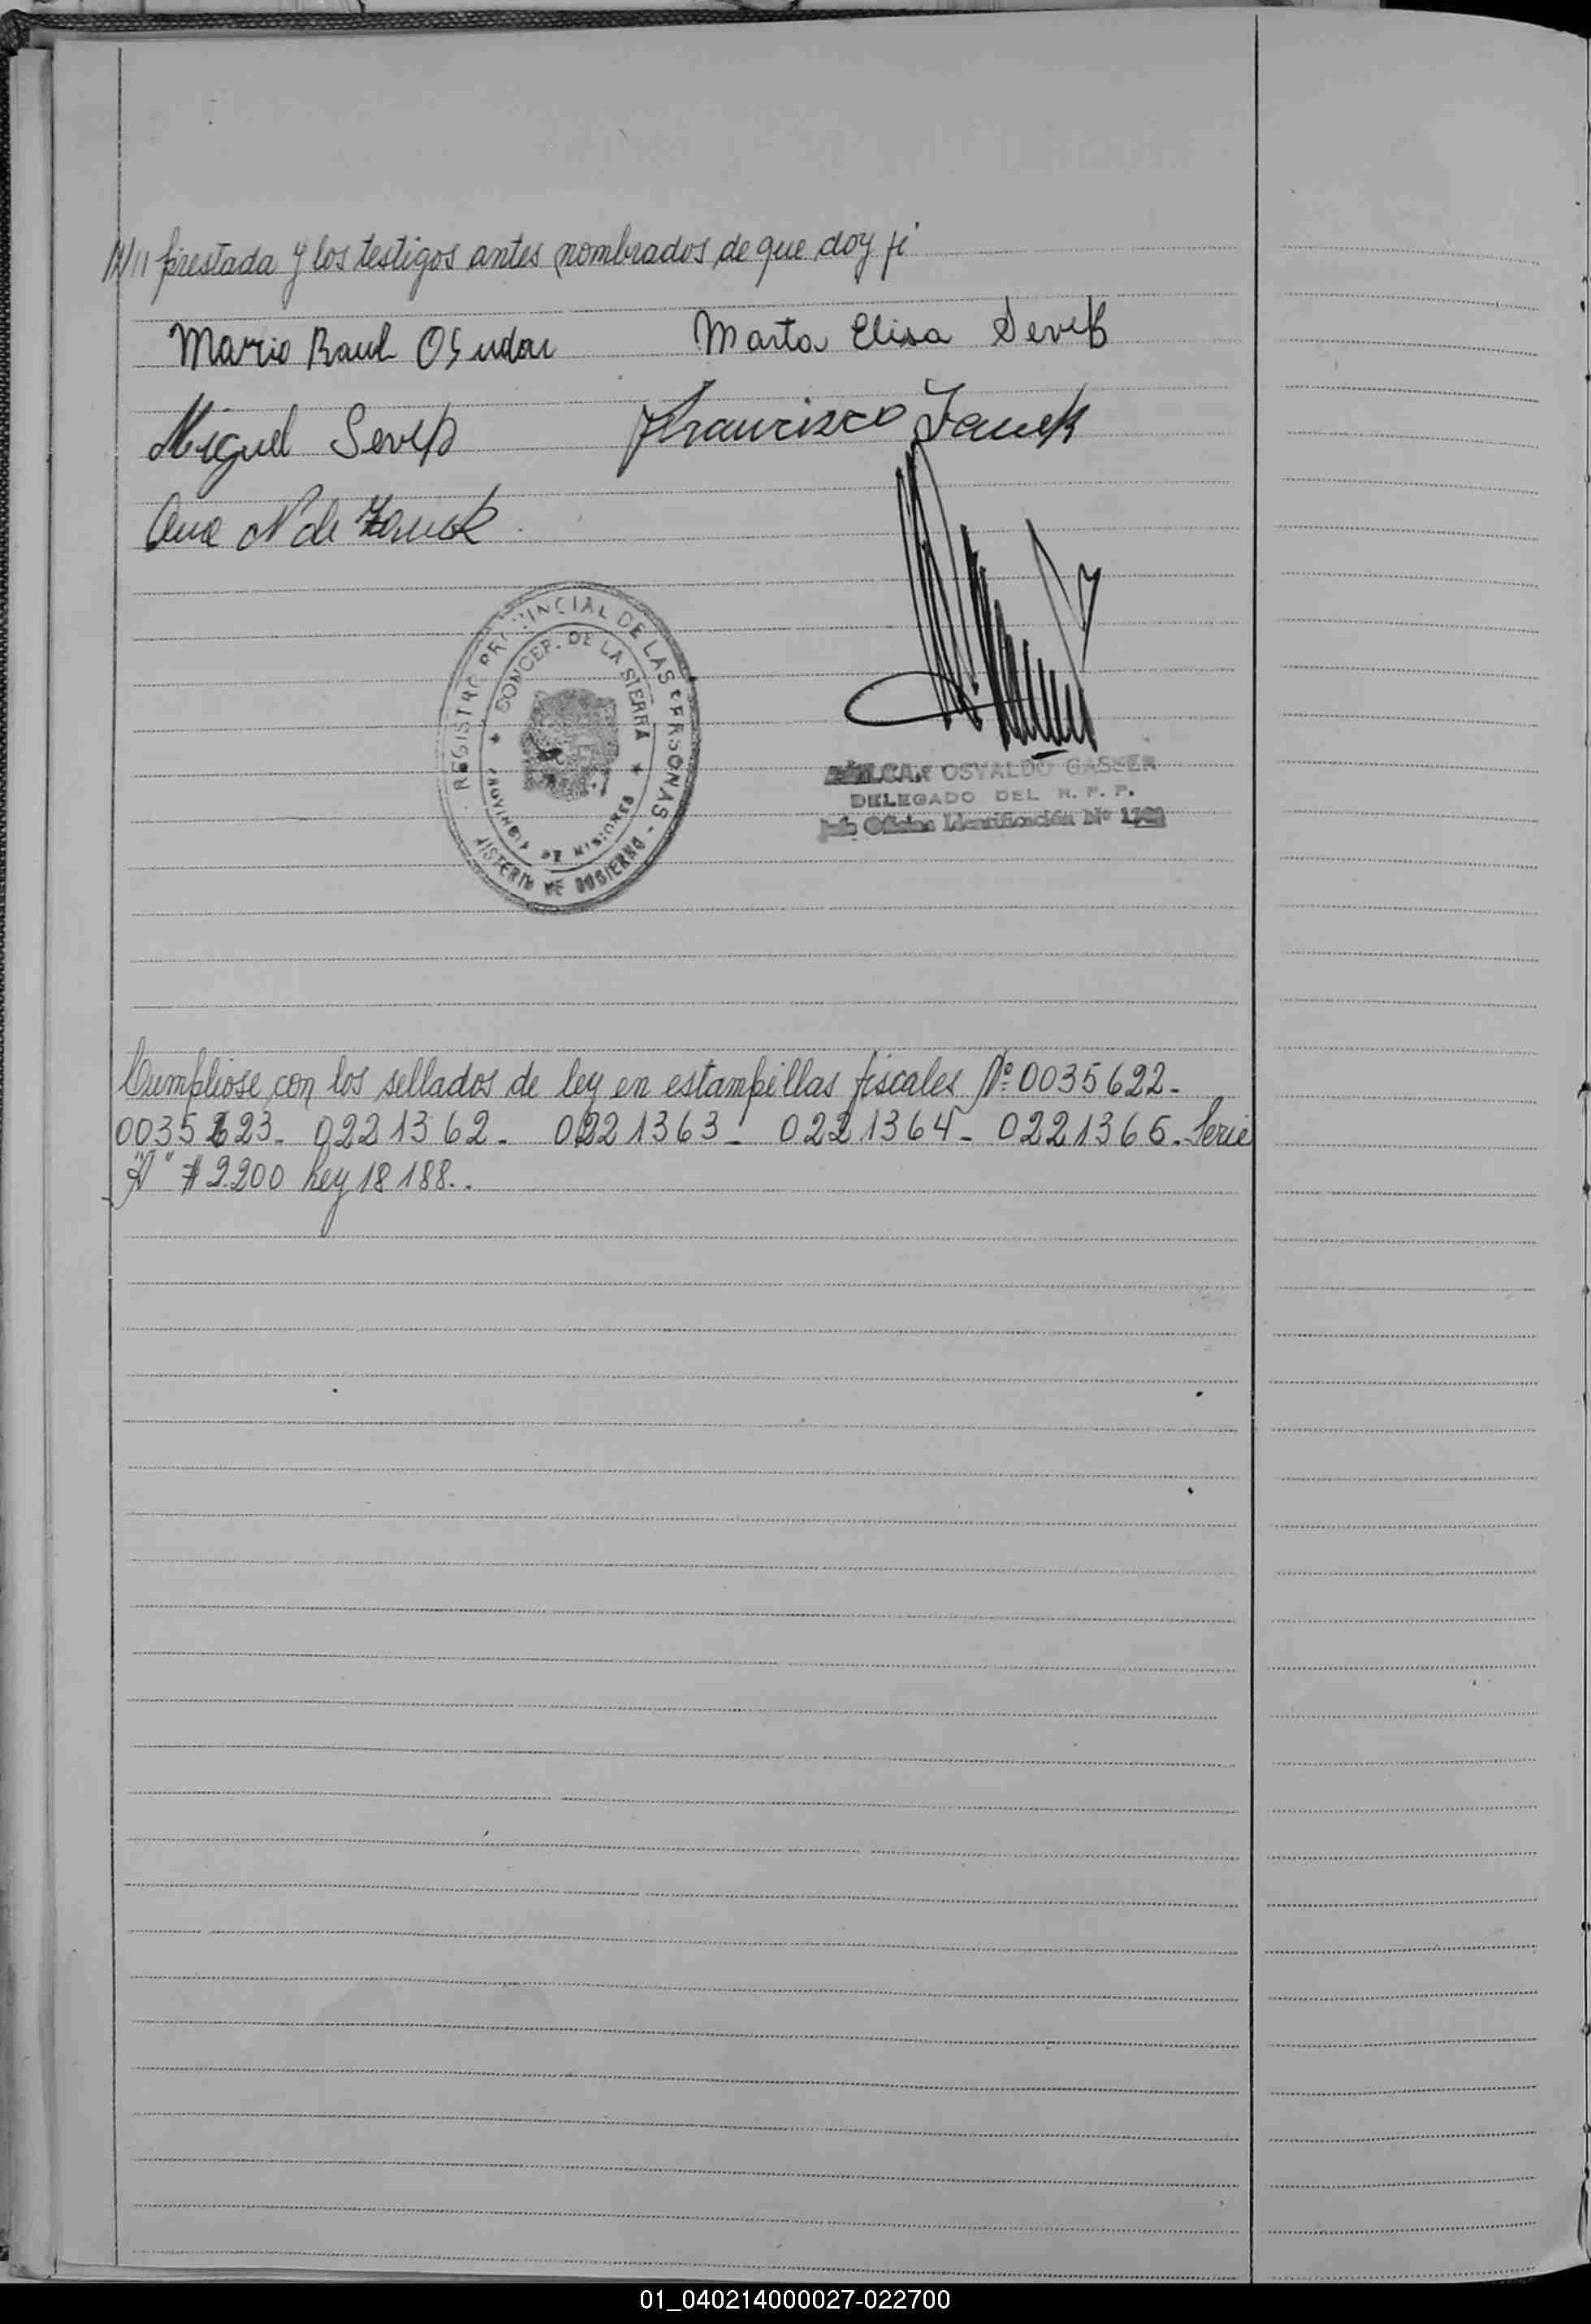 /// prestada y los testigos antes nombrados de que doy fé
Mario Raul Osudar Marta Elisa
Miguel Francisco
Ana N de
REGISTRO PROVINCIAL DE LAS PERSONAS -
CONCEP. DE LA SIERRA
PROVINCIA DE MISIONES
MINISTERIO DE GOBIERNO
OSVALDO GASSER
DELEGADO DEL R. P. P.
Jefe Oficina Identificación Nº
Cumpliose con los sellados de ley en estampillas fiscales Nº 0035622-
0035623- 0221362- 0221363- 0221364- 0221365- Serie
"A" $ 2.200 Ley 18188..
01_040214000027-022700